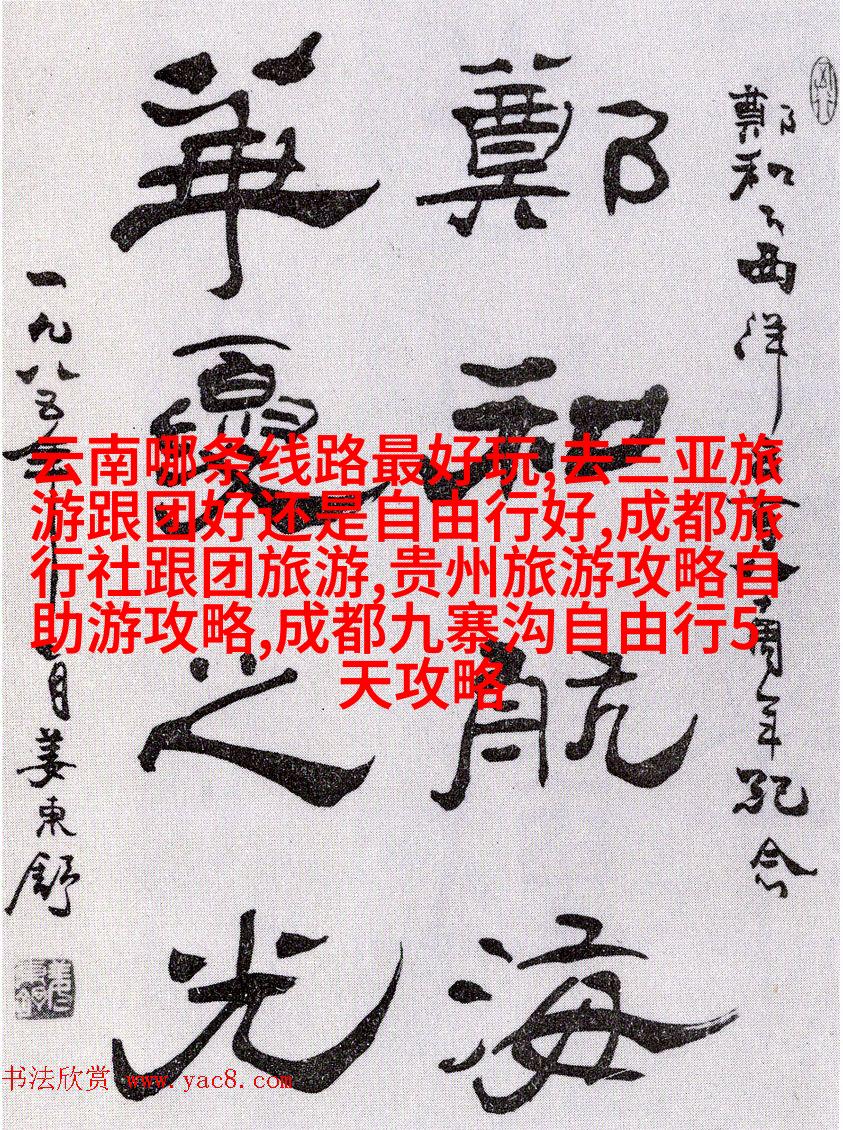 鄭和下西洋周年紀念
鄭和航海
華夏之光
一九八五年月姜東舒
云南哪条线路最好玩,去三亚旅
游跟团好还是自由行好,成都旅
行社跟团旅游,贵州旅游攻略自
助游攻略,成都九寨沟自由行5
天攻略
书法欣赏 www.yac8.com